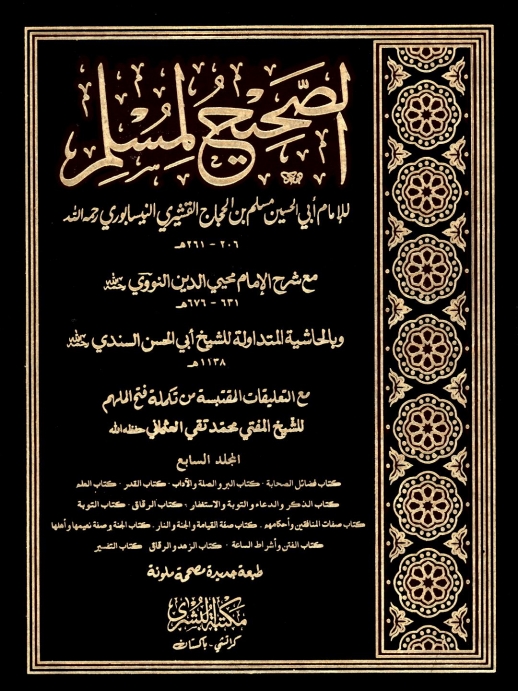 الصَّحِيحُ لِمُسْلِمٍ
للإمام أبي الحسين مسلم بن الحجاج القشيري النيسابوري رحمه الله
٢٠٦ - ٢٦١هـ
مع شرح الإمام محيي الدين النووي
٦٣١ - ٦٧٦هـ
وبالحاشية المتداولة للشيخ أبي الحسن السندي
١١٣٨هـ
مع التعليقات المقتبسة من تكملة فتح الملهم
للشيخ المفتي محمد تقي العثماني حفظه الله
المجلد السابع
كتاب فضائل الصحابة · كتاب البر والصلة والآداب · كتاب القدر · كتاب العلم
كتاب الذكر والدعاء والتوبة والاستغفار · كتاب الرقاق · كتاب التوبة
كتاب صفات المنافقين وأحكامهم · كتاب صفة القيامة والجنة والنار · كتاب الجنة وصفة نعيمها وأهلها
كتاب الفتن وأشراط الساعة · كتاب الزهد والرقاق · كتاب التفسير
طبعة جديدة مصححة ملونة
مكتبة البشرى
كراتشي - باكستان